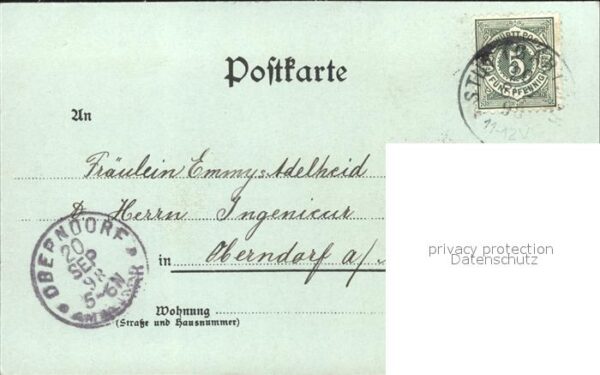 Postkarte
WÜRTT. POST
5
FÜNF PFENNIG
11-12V
An
Fräulein Emmy Adelheid
D. Herrn Ingenieur
in Oberndorf a/
OBERNDORF
20
SEP
98
5-6N
AM NECKAR
Wohnung
(Straße und Hausnummer)
privacy protection
Datenschutz